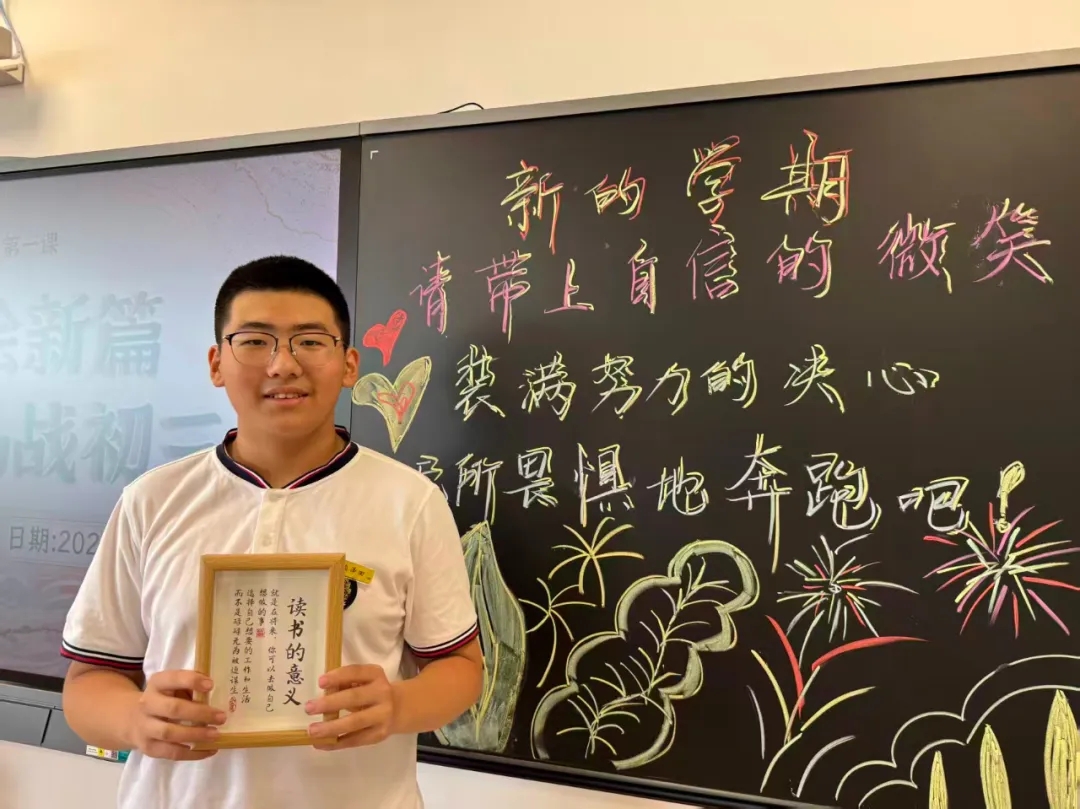 第一课
绘新篇
战初三
日期:202
新的学期
请带上自信的微笑
装满努力的决心
无所畏惧地奔跑吧!
读书的意义
就是在将来,你可以去做自己
想做的事
选择自己想要的工作和生活
而不是碌碌无为被迫谋生